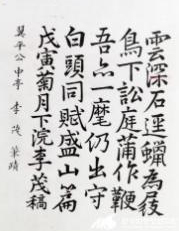 雲深石逕蠟為屐
鳥下訟庭蒲作鞭
吾亦一麾仍出守
白頭同賦盛山篇
戊寅菊月下浣李茂稿
冀平公申亭 李茂 筆蹟